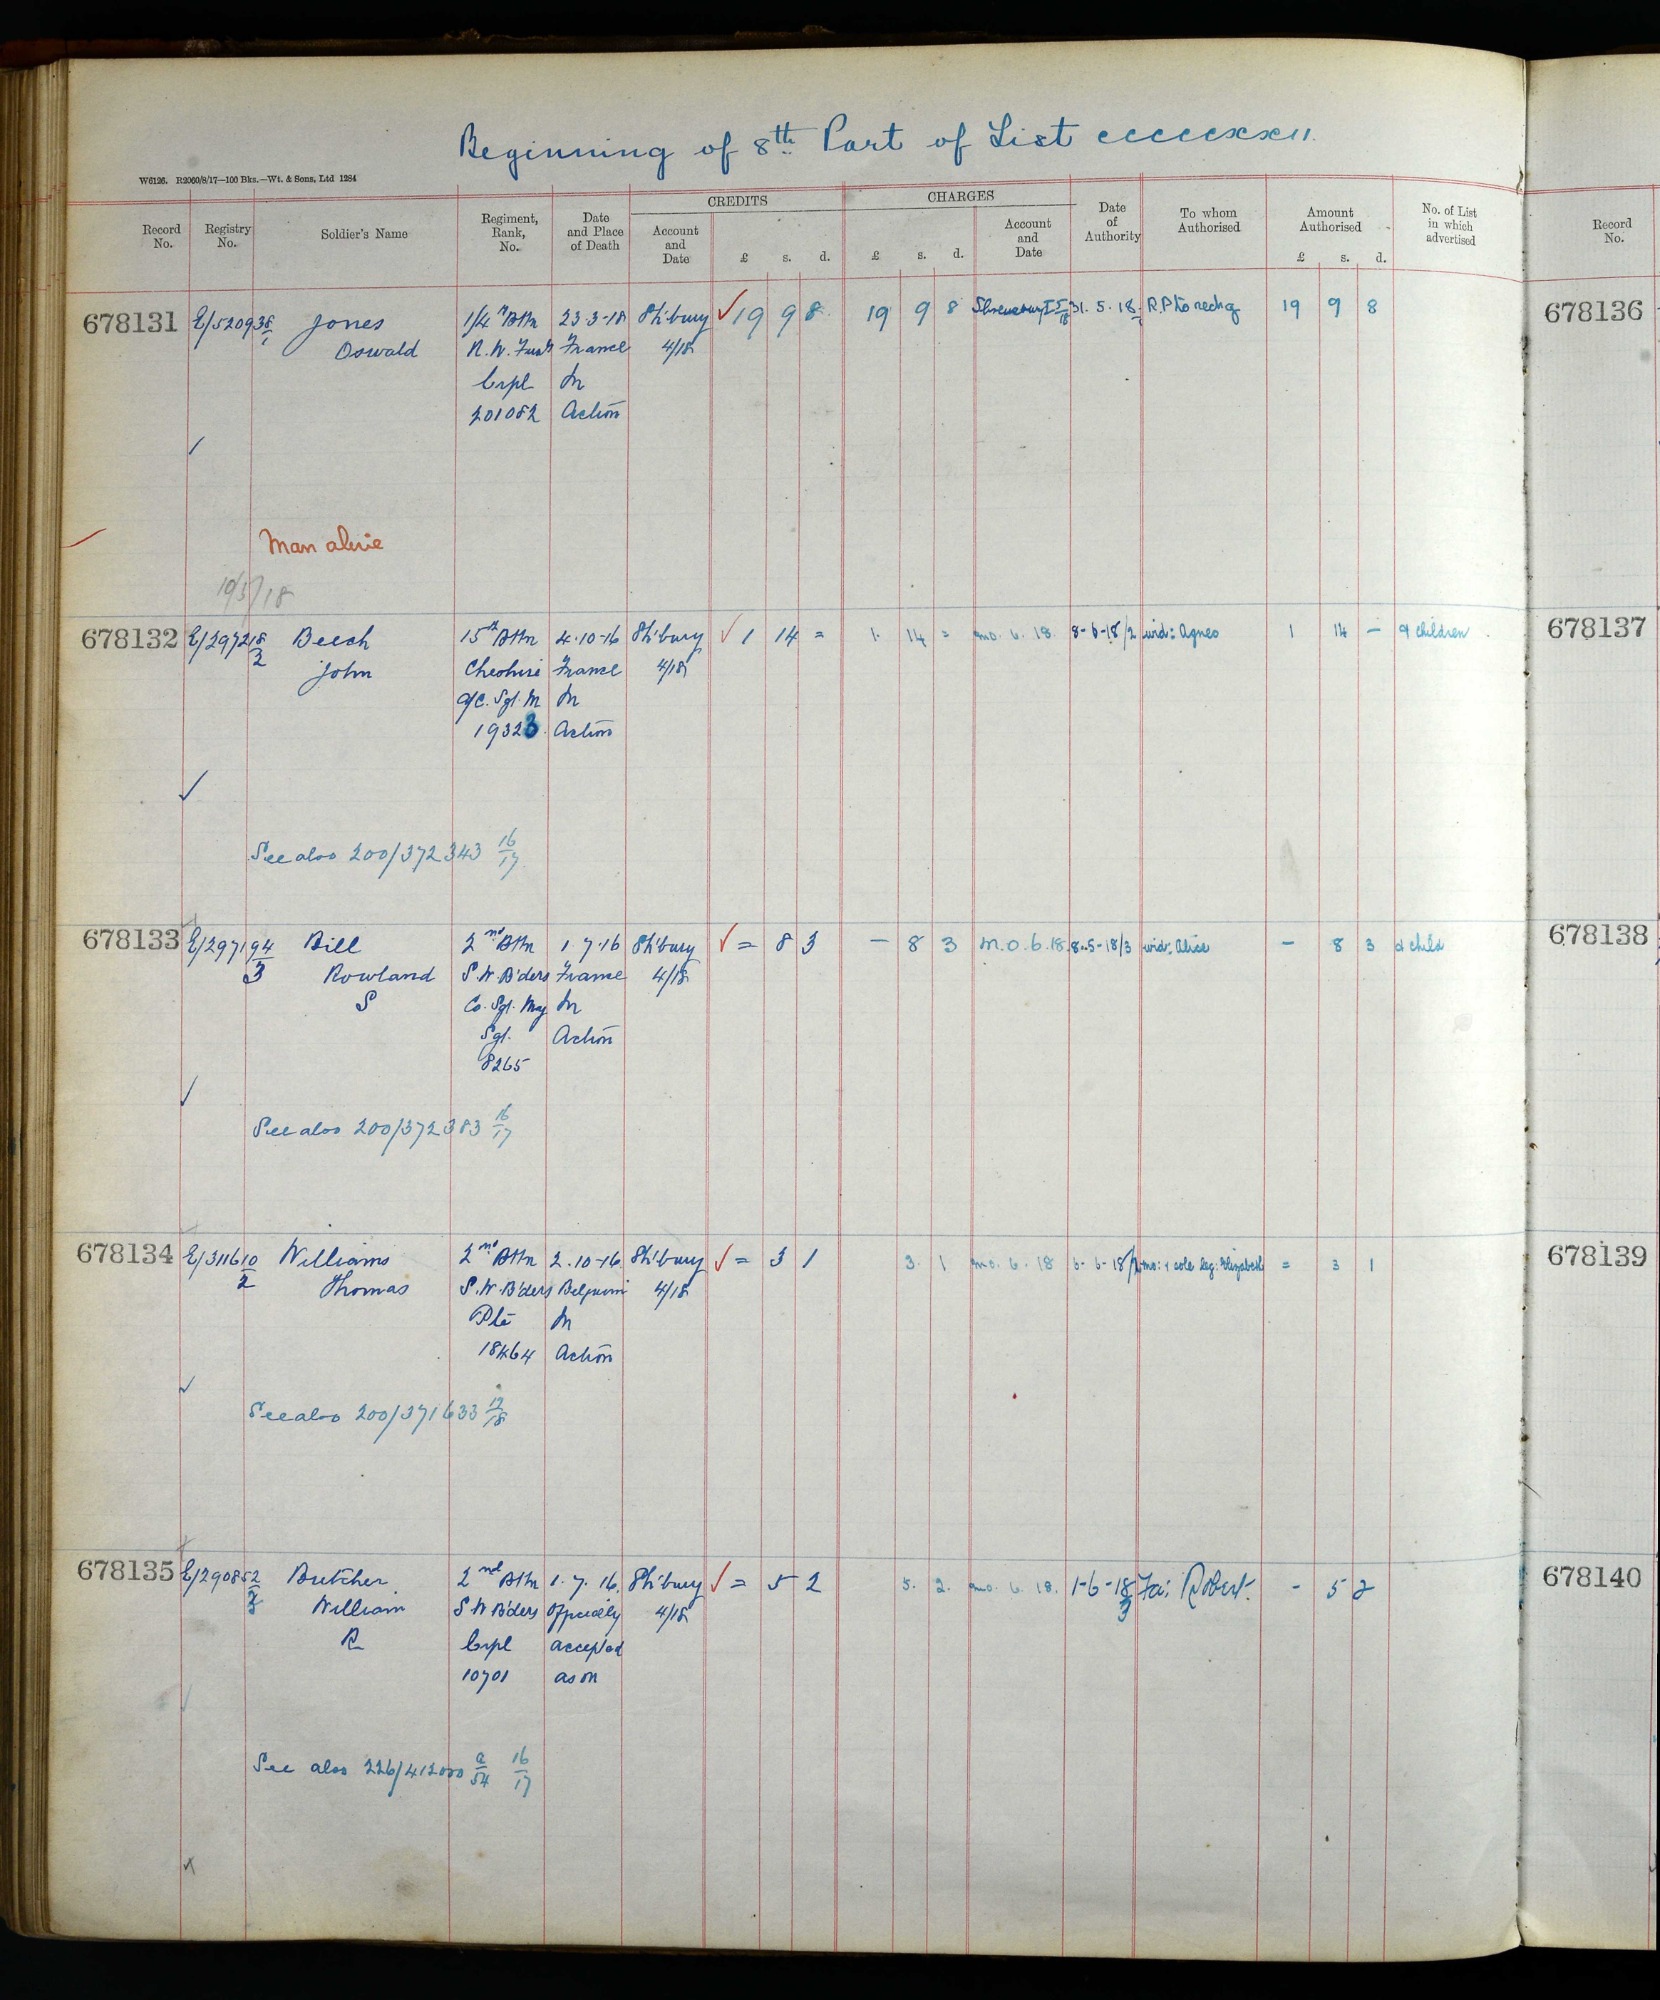 Beginning of 8th Part of List ccccccxxii.
W6126. R2060/8/17—100 Bks.—Wt. & Sons, Ltd 1284
Record No. Registry No. Soldier's Name Regiment, Rank, No. Date and Place of Death CREDITS Account and Date £ s. d. CHARGES £ s. d. Account and Date Date of Authority To whom Authorised Amount Authorised £ s. d. No. of List in which advertised Record No.
678131 E/520938/1 Jones 1/4th Bttn 23-3-18 Sh'bury ✓ 19 9 8 19 9 8 Shrewsbury 31. 5. 18 R.P. to rechg 19 9 8 678136
Oswald R.W. Fus France 4/18
Corpl In
201082 Action
Man alive
10/5/18
678132 E/297218/2 Beech 15th Bttn 4-10-16 Sh'bury ✓ 1 14 = 1. 14 = mo. 6. 18. 8-6-18/2 wid: Agnes 1 14 — & children 678137
John Cheshire France 4/18
a/C. Sgt. M In
19323 Action
See also 200/372343 16/17
678133 E/297194/3 Bill 2nd Bttn 1 7.16 Sh'bury ✓ = 8 3 — 8 3 M.O.6.18. 8-5-18/3 wid: Alice — 8 3 & child 678138
Rowland S.W. B'ders France 4/18
S Co. Sgt. Maj In
Sgt. Action
8265
See also 200/372383 16/17
678134 E/311610/2 Williams 2nd Bttn 2.10-16 Sh'bury ✓ = 3 1 3. 1 mo. 6. 18 6-6-18/2 mo: & sole leg: Elizabeth = 3 1 678139
Thomas S.W. B'ders Belgium 4/18
Pte In
18464 Action
See also 200/371633 12/18
678135 E/290852/3 Butcher 2nd Bttn 1. 7. 16. Sh'bury ✓ = 5 2 5. 2. mo. 6. 18. 1-6-18/3 Fa: Robert. - 5 2 678140
William S W B'ders Officially 4/18
R Corpl accepted
10701 as on
See also 226/412000 a/54 16/17